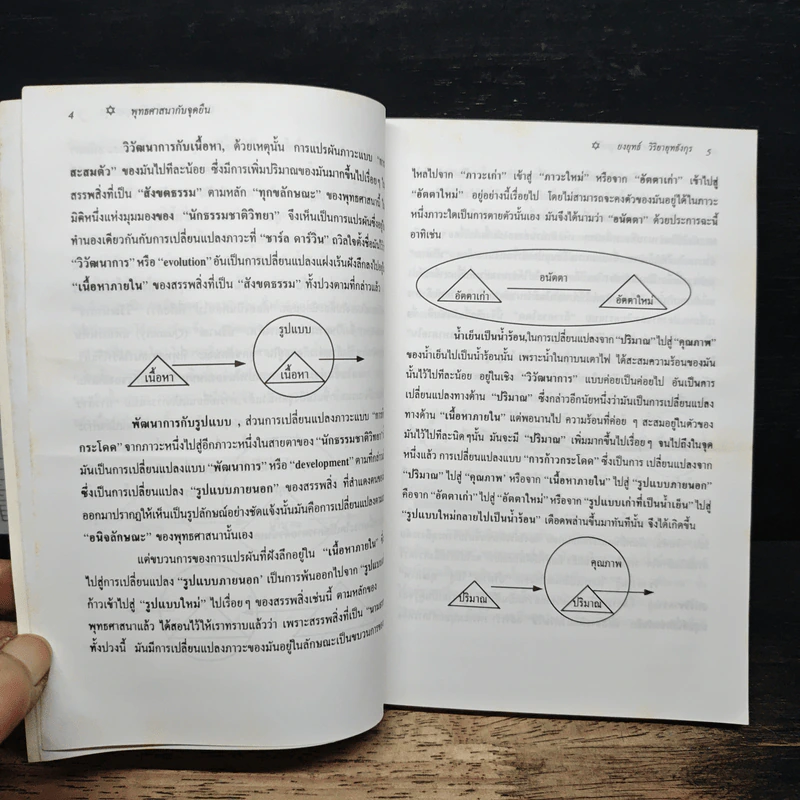 4 ✡ พุทธศาสนากับจุดยืน
วิวัฒนาการกับเนื้อหา, ด้วยเหตุนั้น การแปรผันภาวะแบบ
สะสมตัว" ของมันไปทีละน้อย ซึ่งมีการเพิ่มปริมาณของมันมากขึ้นไปเรื่อยๆ
สรรพสิ่งที่เป็น "สังขตธรรม" ตามหลัก "ทุกขลักษณะ" ของพุทธศาสนานี้
มิติหนึ่งแห่งมุมมองของ "นักธรรมชาติวิทยา" จึงเห็นเป็นการแปรผัน
ทำนองเดียวกันกับการเปลี่ยนแปลงภาวะที่ "ชาร์ล ดาร์วิน" ถวิลใจตั้งชื่อมันไว้
"วิวัฒนาการ" หรือ "evolution" อันเป็นการเปลี่ยนแปลงแฝงเร้นฝังลึกลงไป
"เนื้อหาภายใน" ของสรรพสิ่งที่เป็น "สังขตธรรม" ทั้งปวงตามที่กล่าวแล้ว
รูปแบบ
เนื้อหา
เนื้อหา
พัฒนาการกับรูปแบบ , ส่วนการเปลี่ยนแปลงภาวะแบบ
กระโดด" จากภาวะหนึ่งไปสู่อีกภาวะหนึ่งในสายตาของ "นักธรรมชาติวิทยา"
มันเป็นการเปลี่ยนแปลงแบบ "พัฒนาการ" หรือ "development" ตามที่กล่าว
ซึ่งเป็นการเปลี่ยนแปลง "รูปแบบภายนอก" ของสรรพสิ่ง ที่สำแดง
ออกมาปรากฏให้เห็นเป็นรูปลักษณ์อย่างชัดแจ้งนั้นมันคือการเปลี่ยนแปลง
"อนิจลักษณะ" ของพุทธศาสนานั้นเอง
แต่ขบวนการของการแปรผันที่ฝังลึกอยู่ใน "เนื้อหาภายใน"
ไปสู่การเปลี่ยนแปลง "รูปแบบภายนอก' เป็นการพ้นออกไปจาก
ก้าวเข้าไปสู่ "รูปแบบใหม่" ไปเรื่อยๆ ของสรรพสิ่งเช่นนี้ ตามหลักของ
พุทธศาสนาแล้ว ได้สอนไว้ให้เราทราบแล้วว่า เพราะสรรพสิ่งที่เป็น
ทั้งปวงนี้ มันมีการเปลี่ยนแปลงภาวะของมันอยู่ในลักษณะเป็นขบวนการ
✡ ยงยุทธ์ วิริยายุทธังกุร 5
ไหลไปจาก "ภาวะเก่า" เข้าสู่ "ภาวะใหม่" หรือจาก "อัตตาเก่า" เข้าไปสู่
"อัตตาใหม่" อยู่อย่างนี้เรื่อยไป โดยไม่สามารถจะคงตัวของมันอยู่ได้ในภาวะ
หนึ่งภาวะใดเป็นการตายตัวนั้นเอง มันจึงได้นามว่า "อนัตตา" ด้วยประการฉะนี้
อาทิเช่น
อนัตตา
อัตตาเก่า
อัตตาใหม่
น้ำเย็นเป็นน้ำร้อน,ในการเปลี่ยนแปลงจาก "ปริมาณ" ไปสู่ "คุณภาพ"
ของน้ำเย็นไปเป็นน้ำร้อนนั้น เพราะน้ำในกาบนเตาไฟ ได้สะสมความร้อนของมัน
นั้นไว้ไปทีละน้อย อยู่ในเชิง "วิวัฒนาการ" แบบค่อยเป็นค่อยไป อันเป็นการ
เปลี่ยนแปลงทางด้าน "ปริมาณ" ซึ่งกล่าวอีกนัยหนึ่งว่ามันเป็นการเปลี่ยนแปลง
ทางด้าน "เนื้อหาภายใน" แต่พอนานไป ความร้อนที่ค่อย ๆ สะสมอยู่ในตัวของ
มันไว้ไปทีละนิดๆนั้น มันจะมี "ปริมาณ" เพิ่มมากขึ้นไปเรื่อยๆ จนไปถึงในจุด
หนึ่งแล้ว การเปลี่ยนแปลงแบบ "การก้าวกระโดด" ซึ่งเป็นการ เปลี่ยนแปลงจาก
"ปริมาณ" ไปสู่ "คุณภาพ' หรือจาก "เนื้อหาภายใน" ไปสู่ "รูปแบบภายนอก"
คือจาก "อัตตาเก่า" ไปสู่ "อัตตาใหม่" หรือจาก "รูปแบบเก่าที่เป็นน้ำเย็น" ไปสู่
"รูปแบบใหม่กลายไปเป็นน้ำร้อน" เดือดพล่านขึ้นมาทันทีนั้น จึงได้เกิดขึ้น
คุณภาพ
ปริมาณ
ปริมาณ